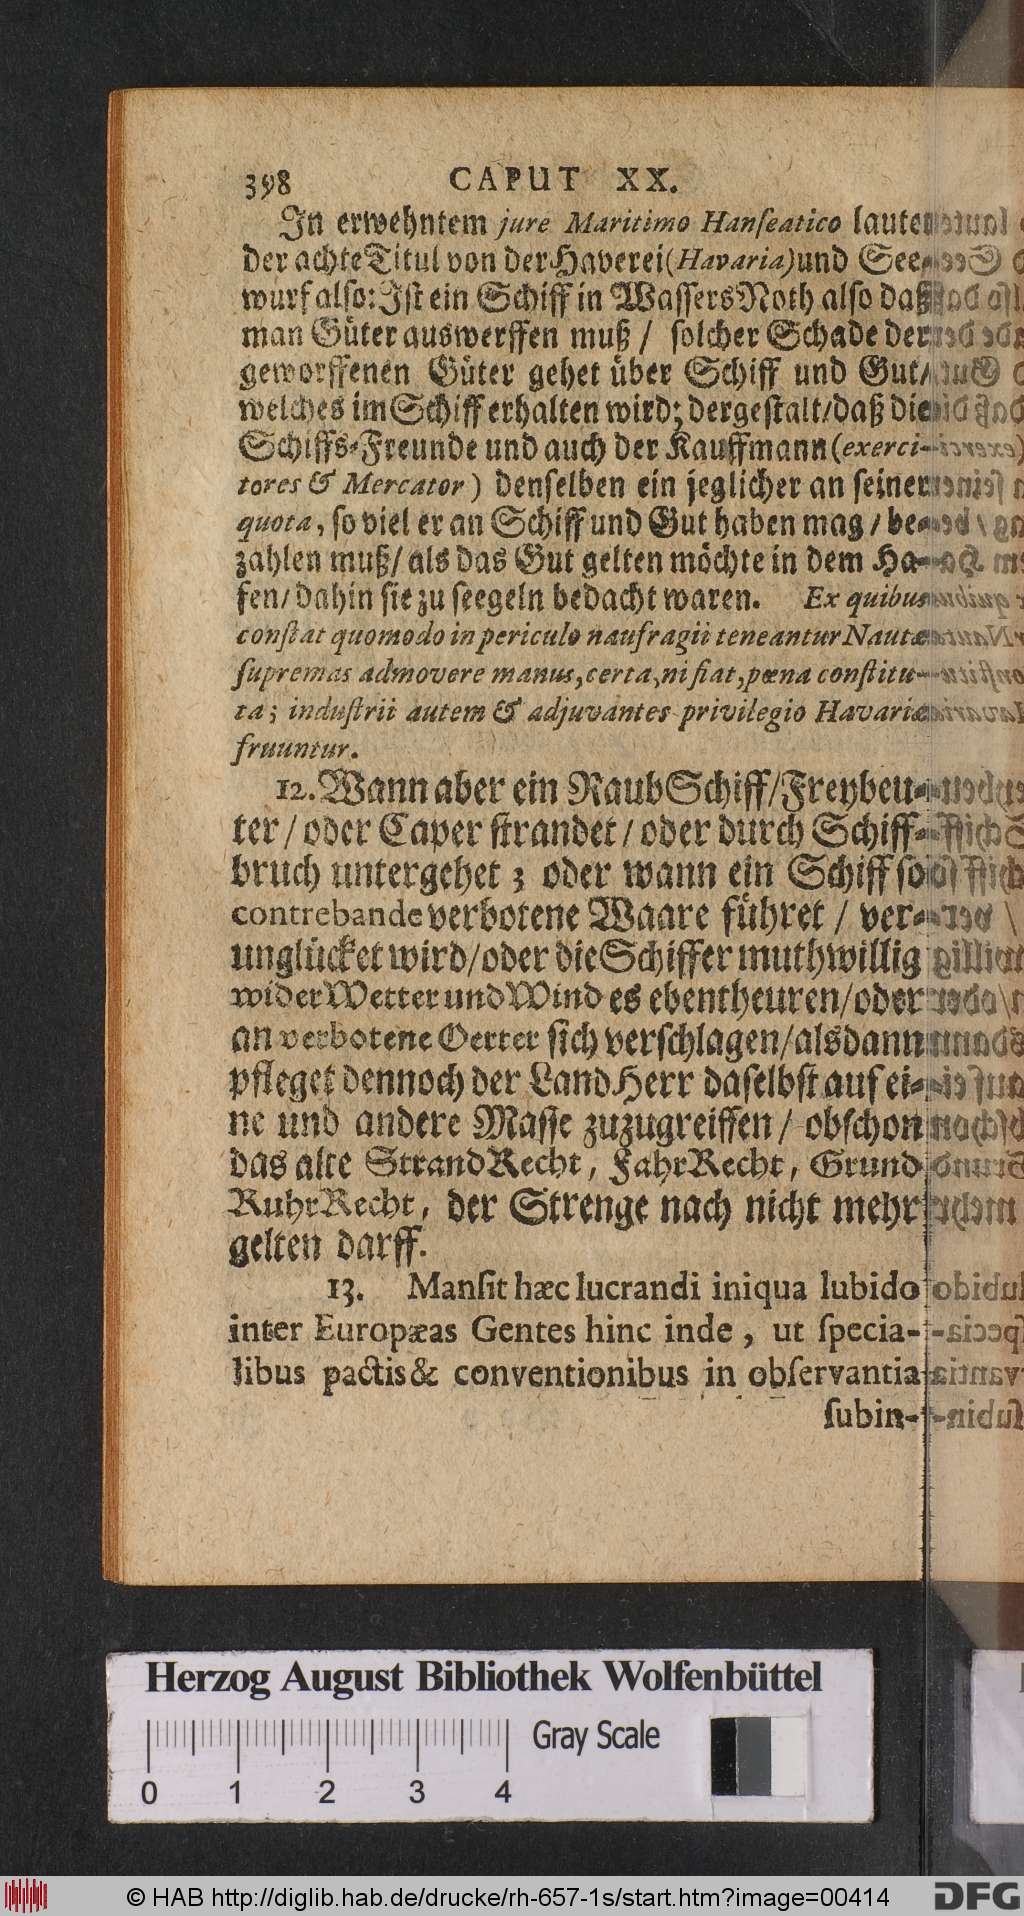 398 CAPUT XX.
In erwehntem jure Maritimo Hanſeatico lautet
der achte Titul von der Haverei (Havaria) und See-
wurf also: Ist ein Schiff in Wassers Noth also daß
man Güter auswerffen muß / solcher Schade der
geworffenen Güter gehet über Schiff und Gut /
welches im Schiff erhalten wird; dergestalt / daß die
Schiffs-Freunde und auch der Kauffmann (exerci-
tores & Mercator) denselben ein jeglicher an seiner
quota, so viel er an Schiff und Gut haben mag / be-
zahlen muß / als das Gut gelten möchte in dem Ha-
fen / dahin sie zu seegeln bedacht waren. Ex quibus
conſtat quomodo in periculo naufragii teneantur Nautæ
ſupremas admovere manus, certa, ni fiat, pœna conſtitu-
ta; induſtrii autem & adjuvantes privilegio Havariæ
fruuntur.
12. Wann aber ein Raub Schiff / Freybeu-
ter / oder Caper strandet / oder durch Schiff-
bruch untergehet; oder wann ein Schiff so
contrebande verbotene Waare führet / ver-
unglücket wird / oder die Schiffer muthwillig
wider Wetter und Wind es ebentheuren / oder
an verbotene Oerter sich verschlagen / alsdann
pfleget dennoch der Land Herr daselbst auf ei-
ne und andere Masse zuzugreiffen / obschon
das alte Strand Recht, Fahr Recht, Grund
Ruhr Recht, der Strenge nach nicht mehr
gelten darff.
13. Manſit hæc lucrandi iniqua lubido
inter Europæas Gentes hinc inde, ut ſpecia-
libus pactis & conventionibus in obſervantia
ſubin-
Herzog August Bibliothek Wolfenbüttel
Gray Scale
0 1 2 3 4
© HAB http://diglib.hab.de/drucke/rh-657-1s/start.htm?image=00414
DFG